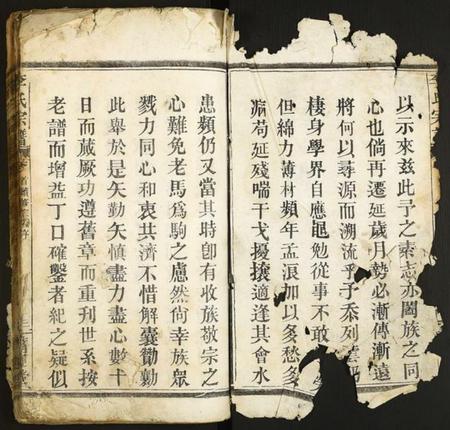 以示來茲此予之素志亦闔族之同
心也倘再遷延歲月勢必漸傳漸遠
將何以尋源而溯流乎予忝列
棲身學界自應黽勉從事不敢
但綿力薄材頻年孟浪加以多愁多
病苟延殘喘干戈擾攘適逢其會水
患頻仍又當其時卽有收族敬宗之
心難免老馬爲駒之慮然尙幸族衆
戮力同心和衷共濟不惜解囊勷勷
此舉於是矢勤矢慎盡力盡心數十
日而蕆厥功遵舊章而重刊世系按
老譜而增益丁口確鑿者紀之疑似
李氏宗譜
李氏宗